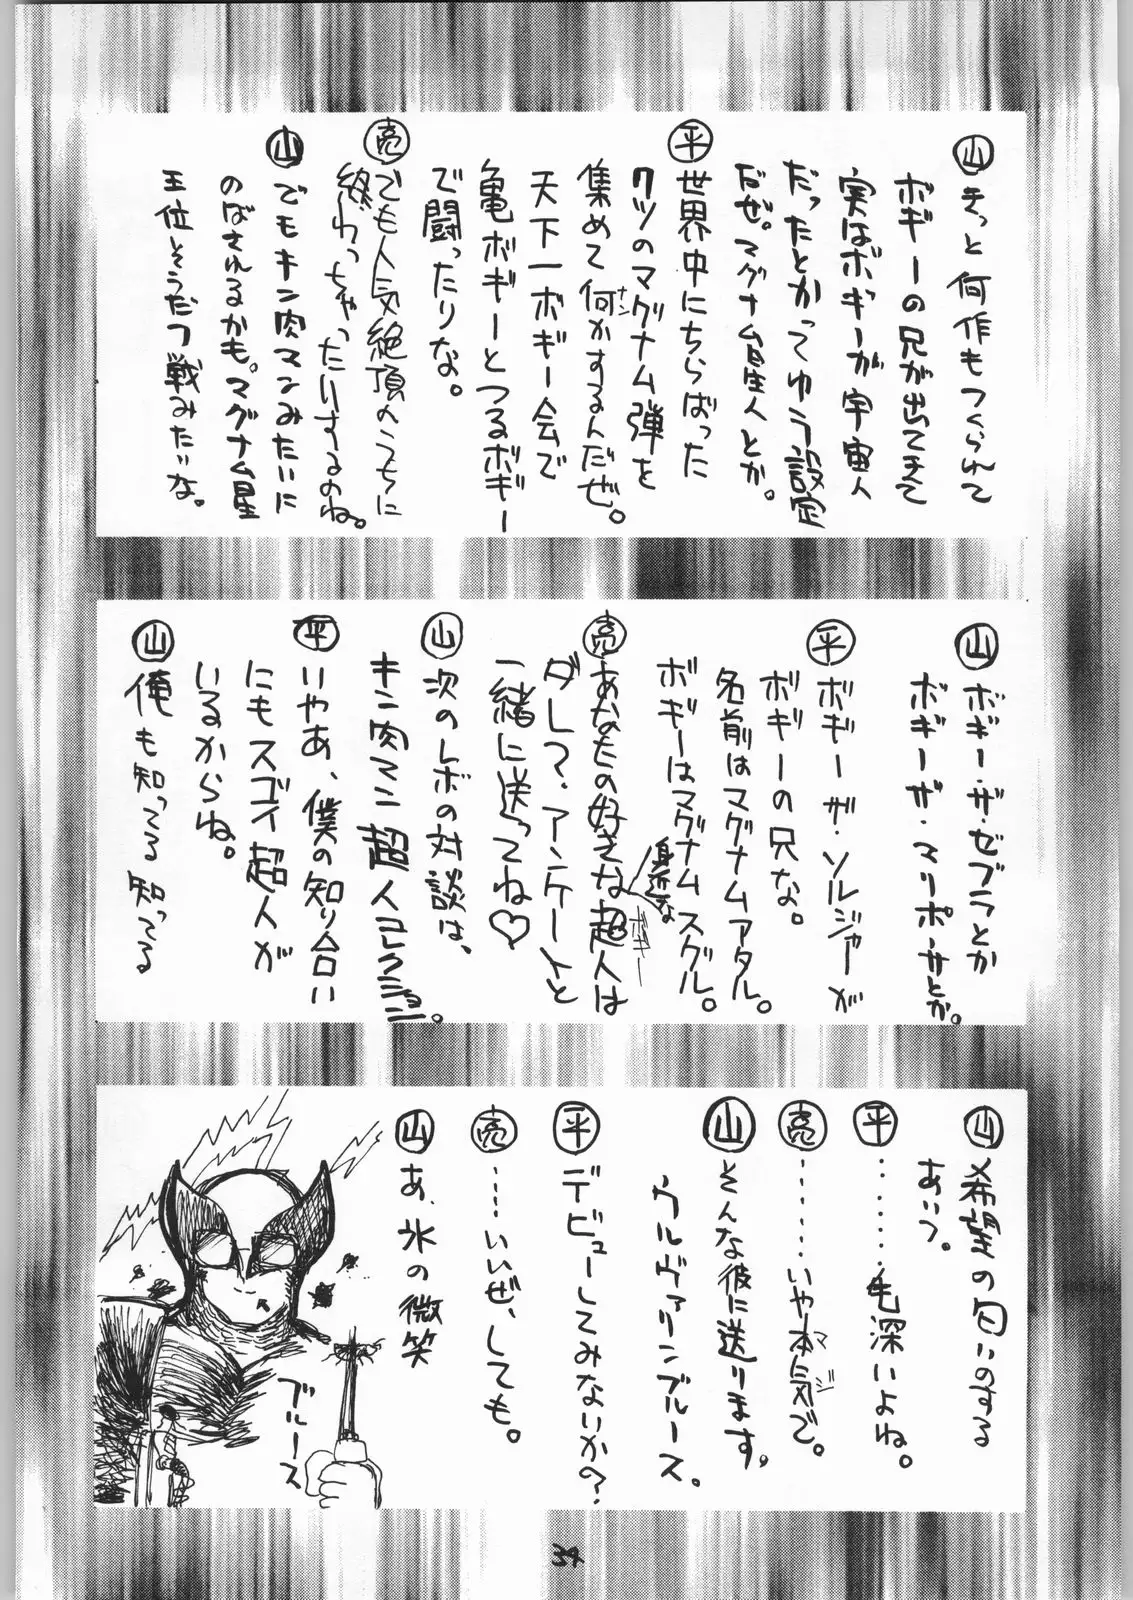 ㊤山 きっと何作もつくられて
ボギーの兄が出てきて
実はボギーが宇宙人
だったとかってゆう設定
だぜ。マグナム星人とか。
平 世界中にちらばった
クツのマグナム弾を
集めて何かするんだぜ。
ナン
天下一ボギー会で
亀ボギーとつるボギー
で闘ったりな。
亮 でも人気絶頂のうちに
終わっちゃったりするのね。
山 でもキン肉マンみたいに
のばされるかも。マグナム星
王位そうだつ戦みたいな。
山 ボギー・ザ・ゼブラとか
ボギーザ・マリポーサとか。
平 ボギー ザ・ソルジャーが
ボギーの兄な。
名前はマグナムアタル。
ボギーはマグナムスグル。
亮 あなたの好きな超人は
身近な
ボギー
ダレ?アンケートと
一緒に送ってね♡
山 次のレボの対談は、
キン肉マン超人コレクション。
平 いやあ、僕の知り合い
にもスゴイ超人が
いるからね。
山 俺も知ってる知ってる
山 希望の匂いのする
あいつ。
平 ‥‥‥‥毛深いよね。
亮 ‥‥‥‥いや本気で。
マジ
山 そんな彼に送ります。
ウルヴァリンブルース。
平 デビューしてみないか?
亮 ‥‥いいぜ、しても。
山 あ、氷の微笑
ブルース
34